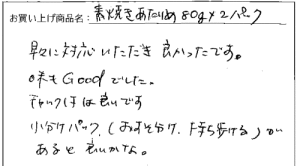 お買い上げ商品名：素焼きあたりめ80g×2パック
早々に対応いただき良かったです。
味もGoodでした。
チャック付は良いです
小分けパック（おすそ分け、持ち歩ける）が
あると良いかな。